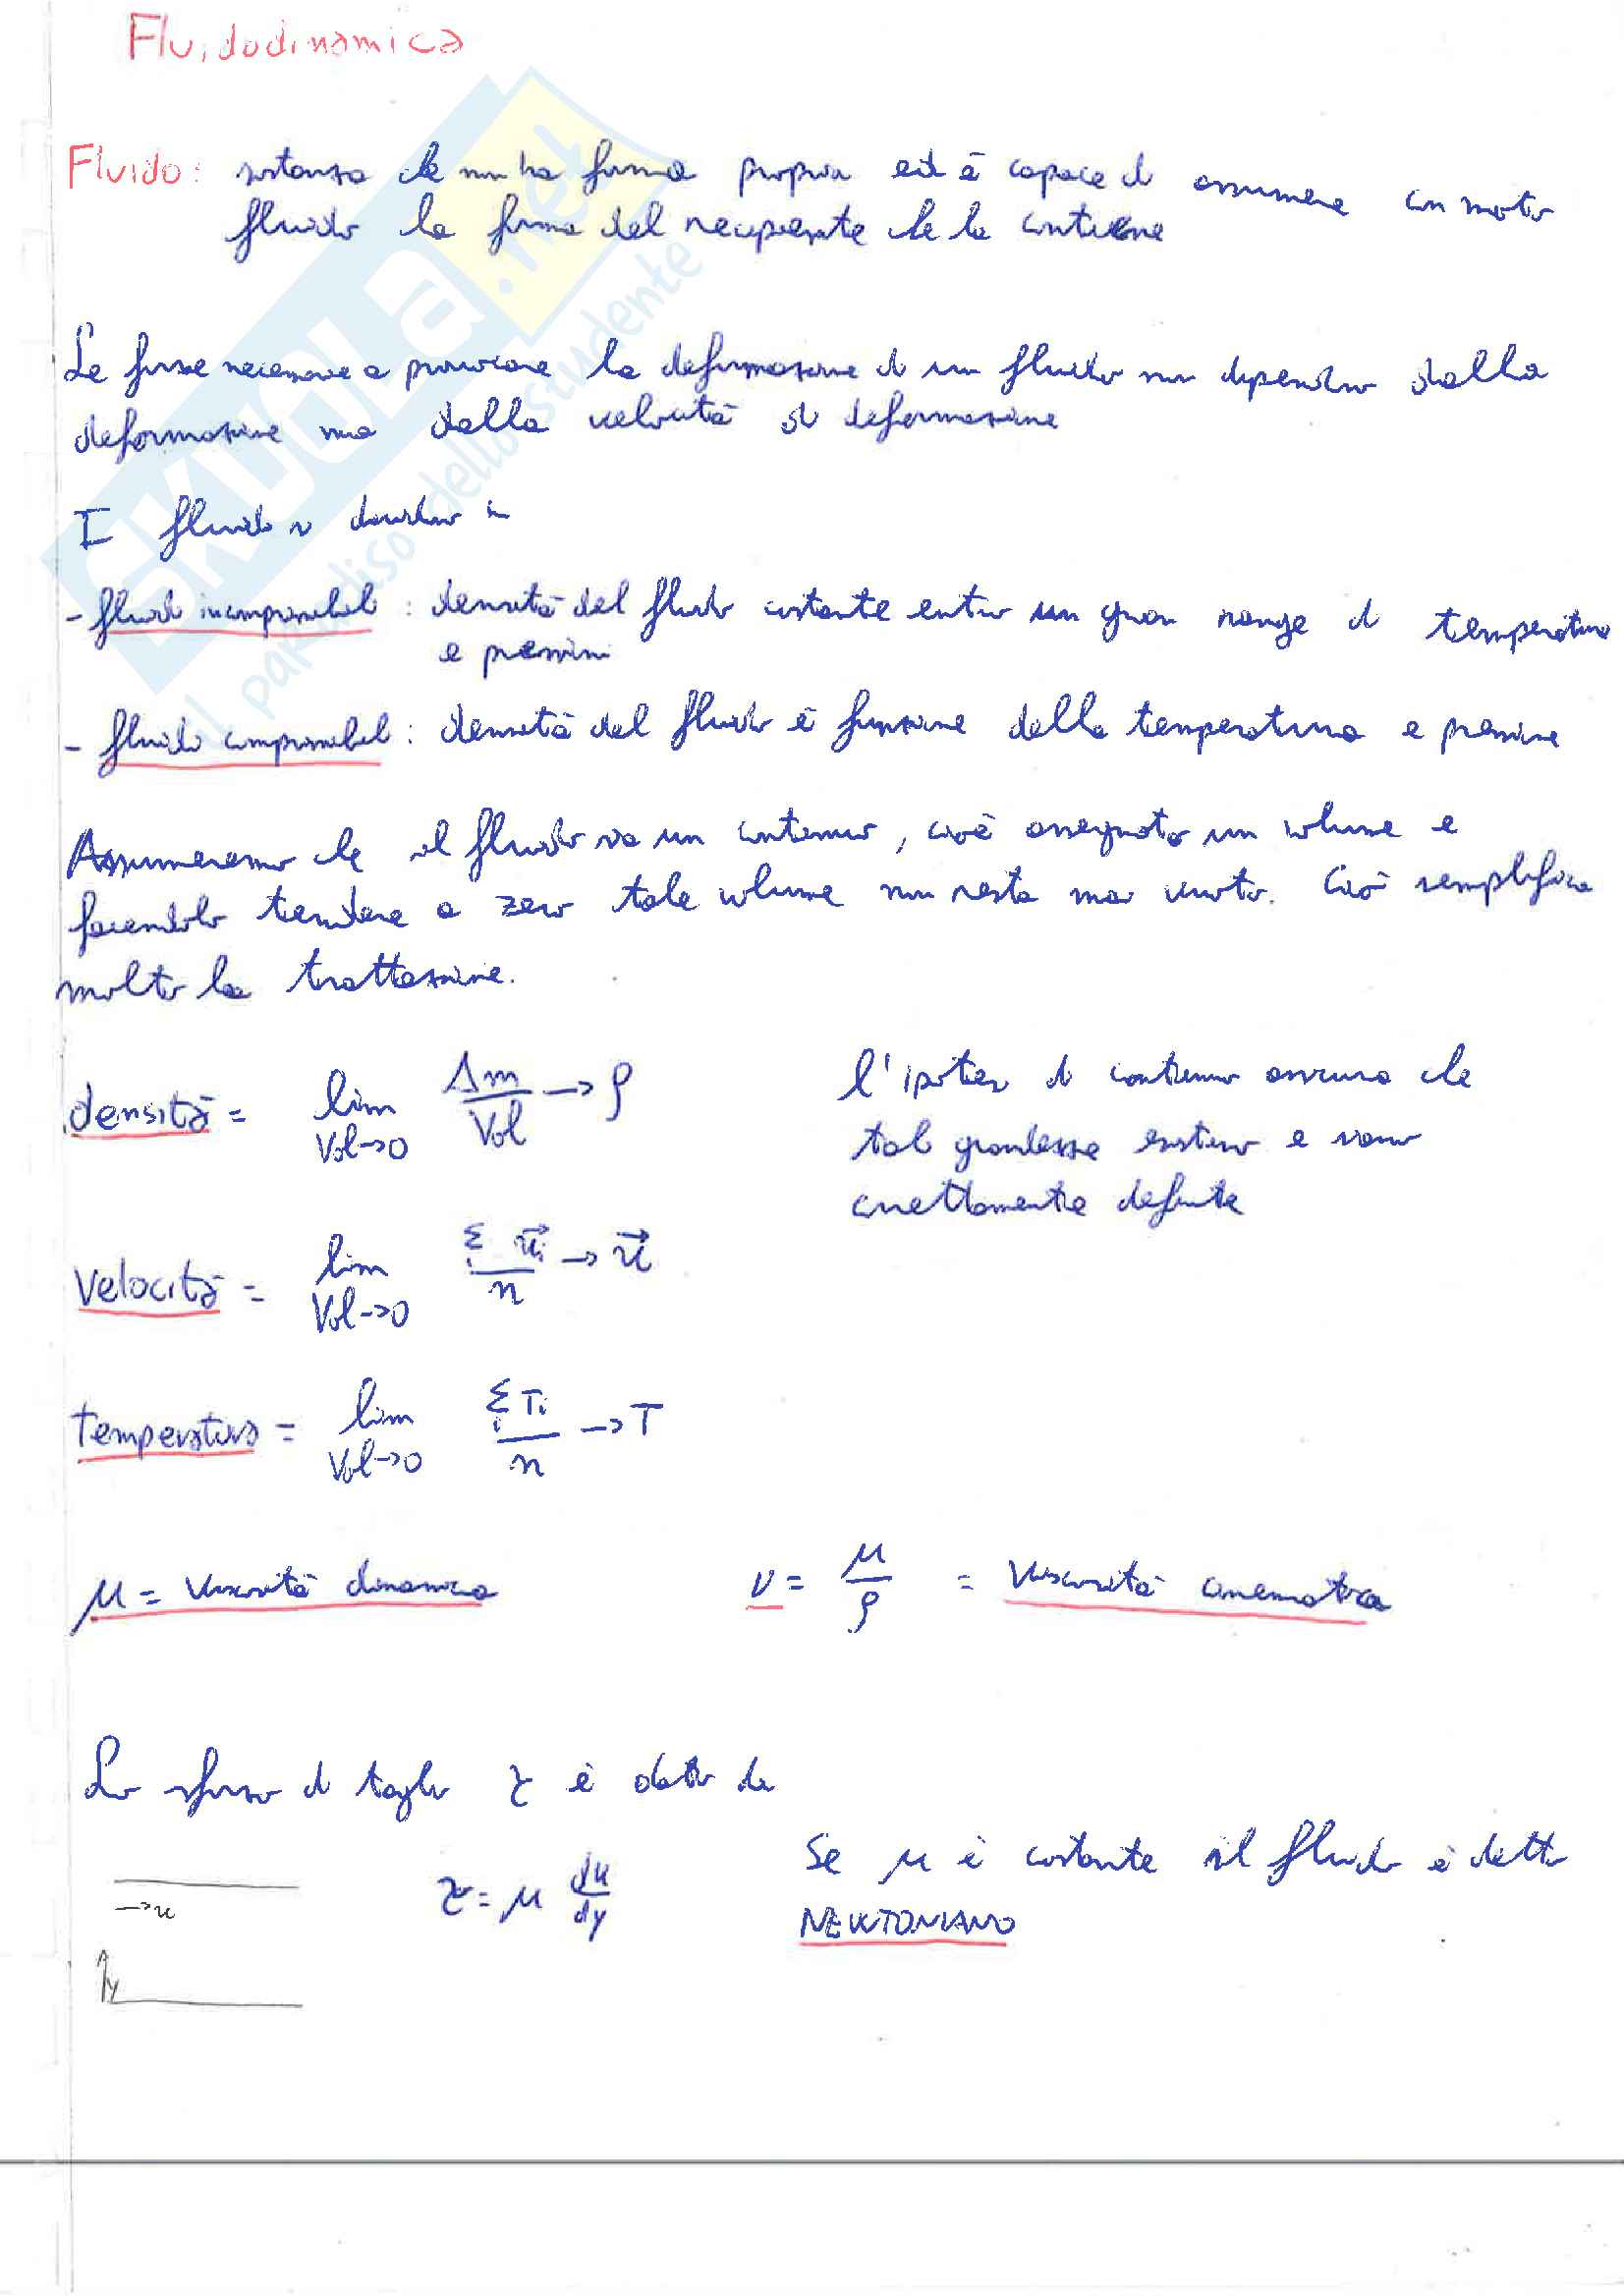 Fluidodinamica
Fluido: sostanza che non ha forma propria ed è capace di assumere con moto
fluido la forma del recipiente che lo contiene
Le forze necessarie a provocare la deformazione di un fluido non dipendono dalla
deformazione ma dalla velocità di deformazione
I fluidi si dividono in
- fluidi incomprimibili: densità del fluido costante entro un gran range di temperature
e pressioni
- fluidi comprimibili: densità del fluido è funzione della temperatura e pressione
Assumeremo che il fluido sia un continuo, cioè assegnato un volume e
facendolo tendere a zero tale volume non resta mai vuoto. Ciò semplifica
molto la trattazione.
densità = lim Vol→0 Δm/Vol → ρ
l'ipotesi di continuo assicura che
tali grandezze esistono e sono
correttamente definite
velocità = lim Vol→0 Σi u⃗i/n → u⃗
temperatura = lim Vol→0 Σi Ti/n → T
μ = viscosità dinamica
ν = μ/ρ = viscosità cinematica
Lo sforzo di taglio τ è dato da
τ = μ du/dy
Se μ è costante il fluido è detto
NEWTONIANO
→u
y
SKUOLA.net
il paradiso dello studente